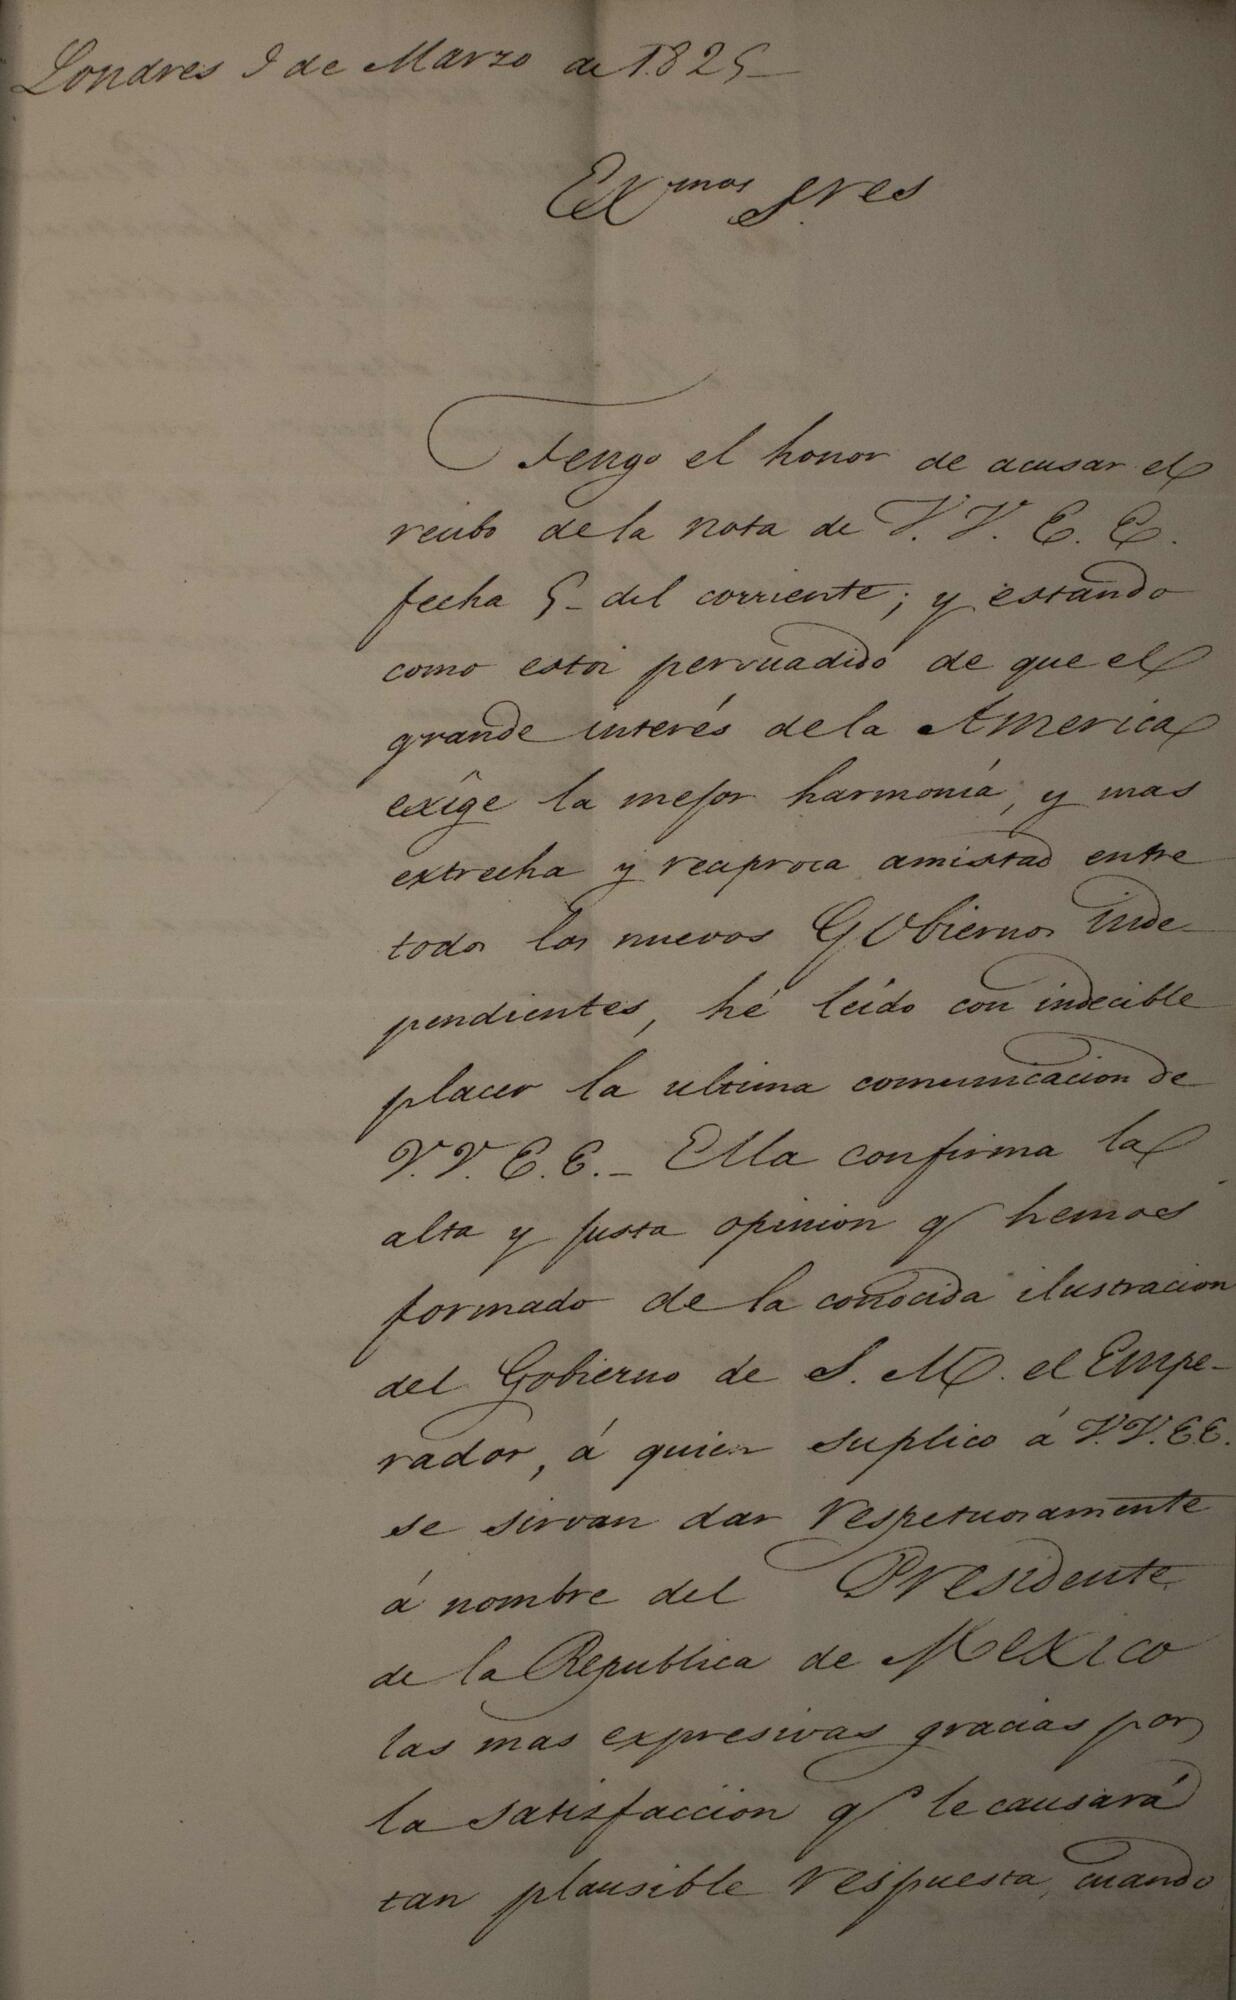 Londres 9 de Marzo de 1825_
Exmos Sres
Tengo el honor de acusar el
recibo de la nota de V. V. E. E.
fecha 5_ del corriente; y estando
como estoi persuadido de que el
grande interés de la America
exîge la mejor harmonía, y mas
extrecha y reciproca amistad entre
todos los nuevos Gobiernos inde-
pendientes, hé leído con indecible
placer la ultima comunicacion de
V. V. E. E. _ Ella confirma la
alta y justa opinion q hemos
formado de la conocida ilustracion
del Gobierno de S. M. el Empe-
rador, á quien suplico á V. V. E. E.
se sirvan dar respetuosamente
á nombre del Presidente
de la Republica de Mexico
las mas expresivas gracias por
la satisfaccion q le causará
tan plausible respuesta, cuando